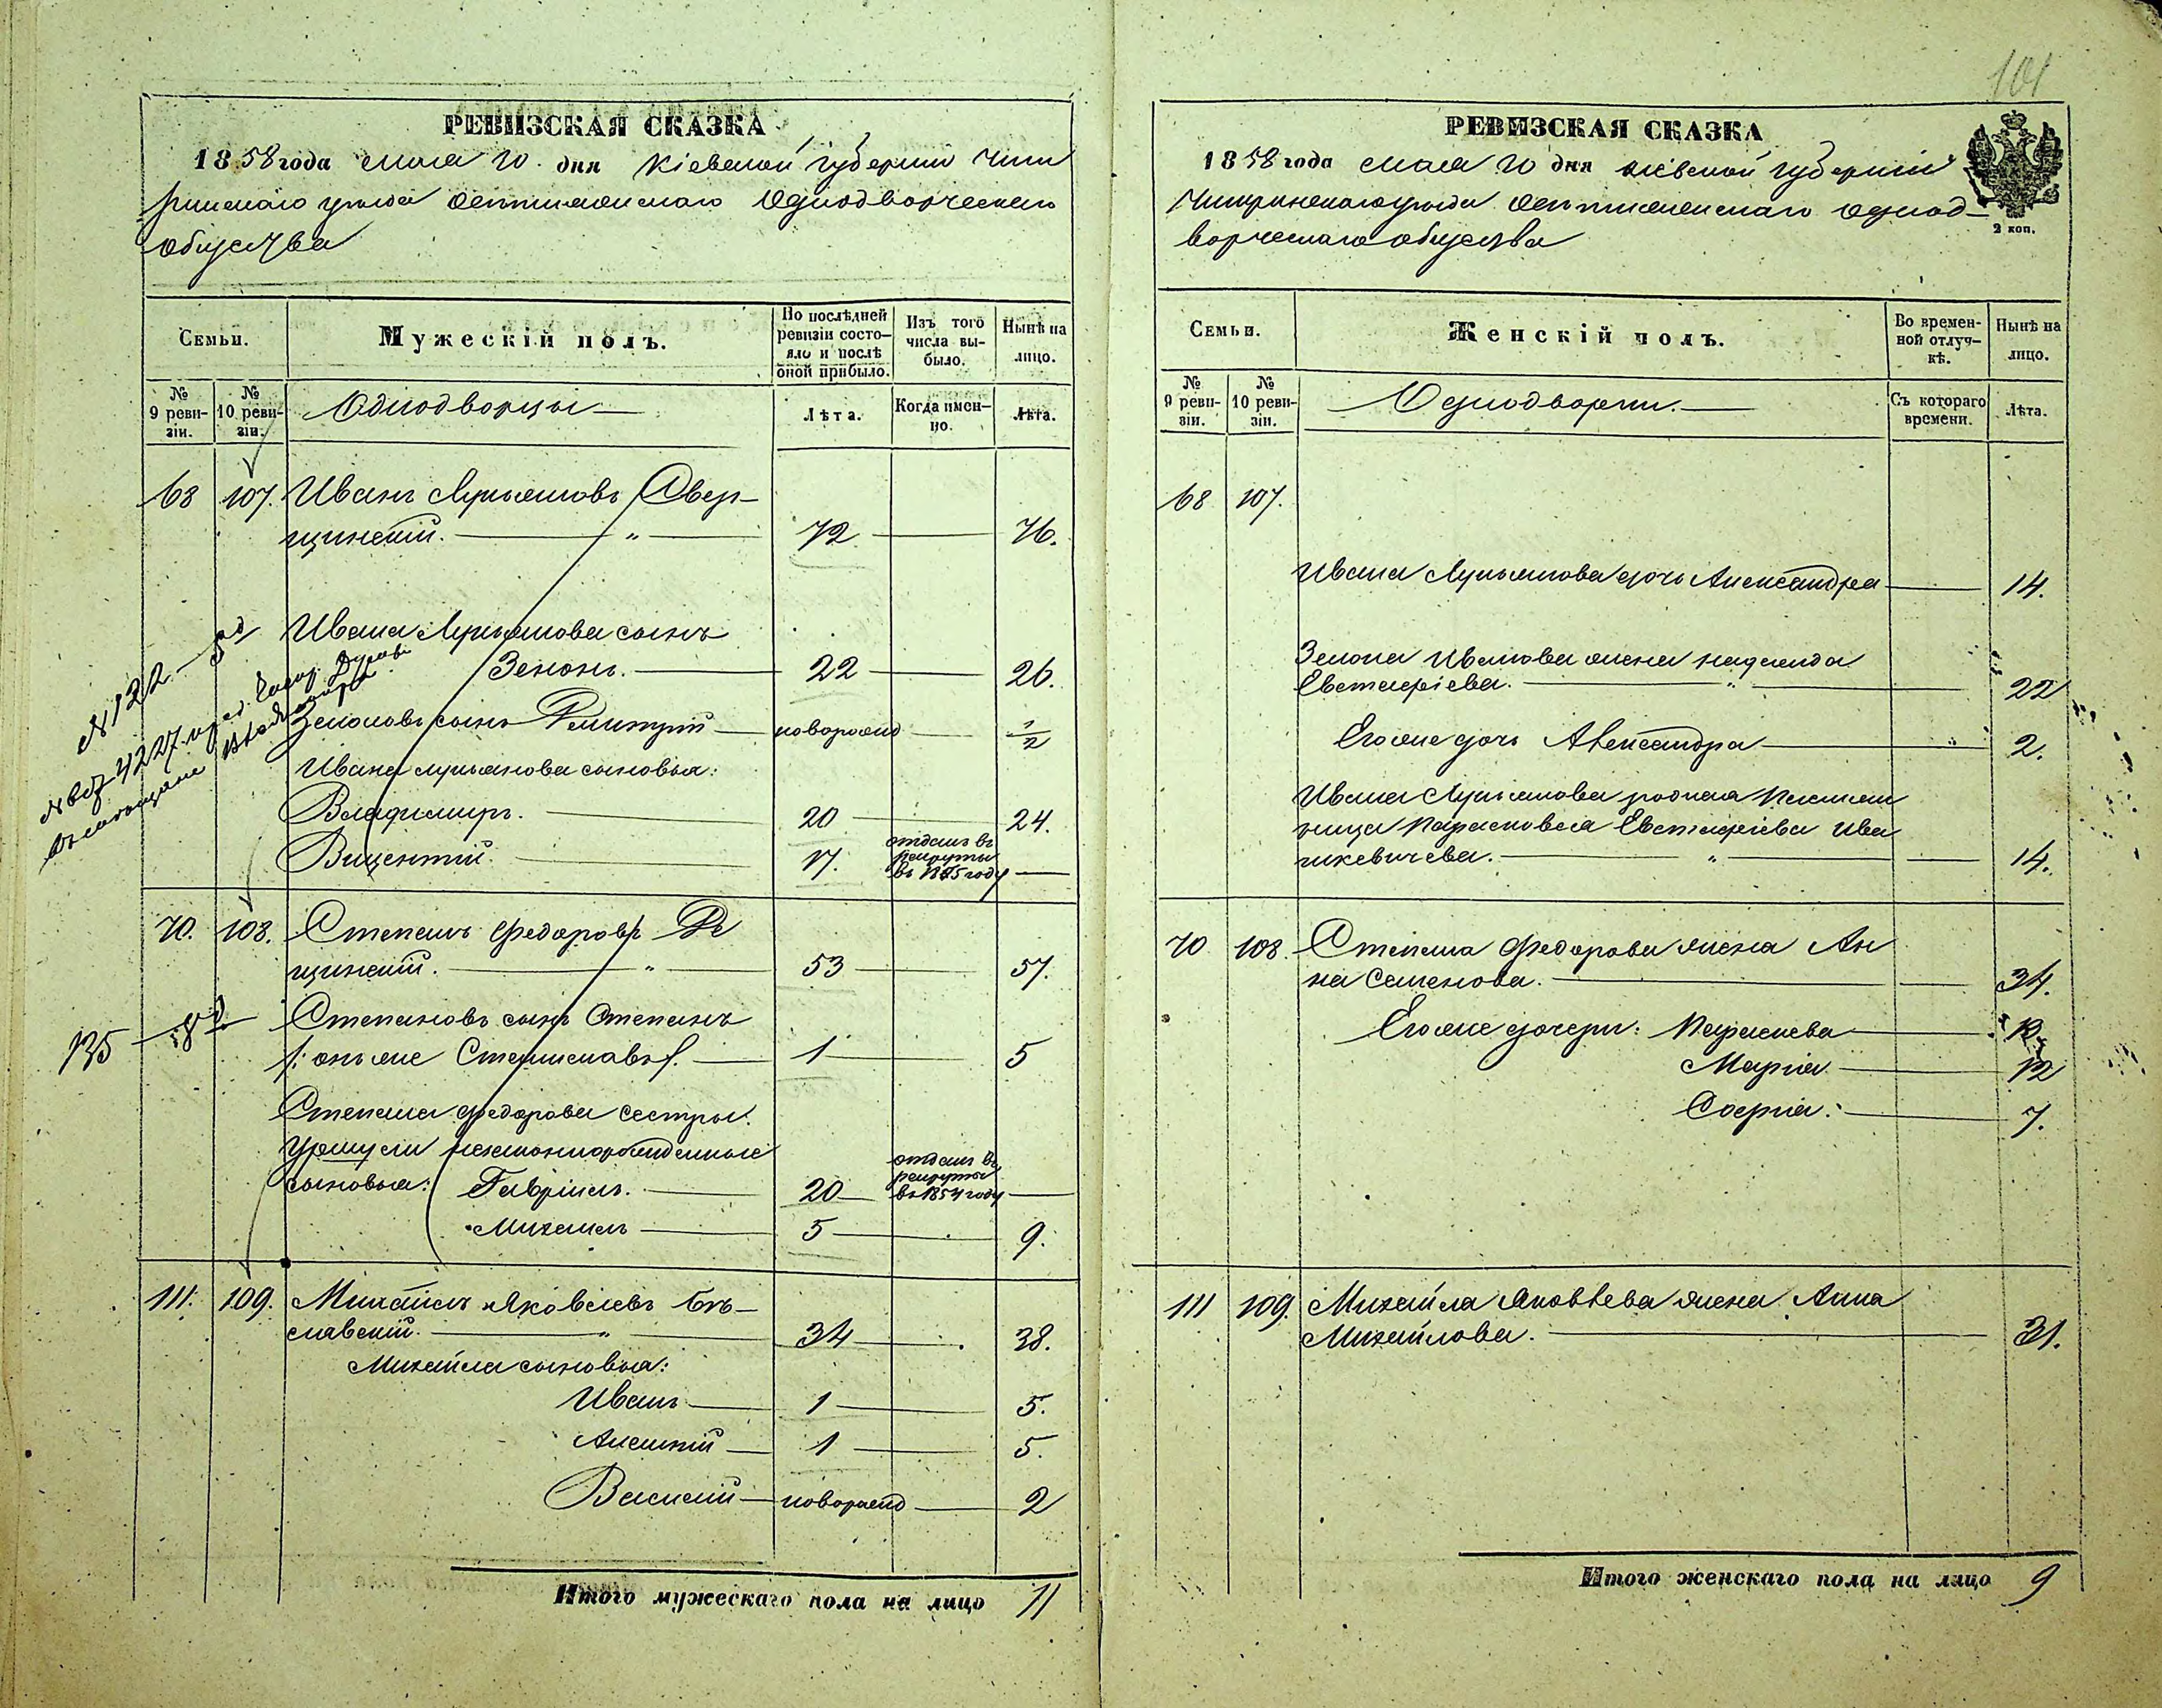 РЕВИЗСКАЯ СКАЗКА
1858 года мая 10 дня Кіевской губерніи Чиги
ринскаго уѣзда Однодворческаго
общества
Семьи.
Мужескій полъ.
По послѣдней ревизіи состояло и послѣ оной прибыло.
Изъ того числа выбыло.
Нынѣ на лицо.
№ 9 ревизіи.
№ 10 ревизіи.
Однодворцы
Лѣта.
Когда именно.
Лѣта.
68 107. Иванъ Лукьяновъ
щинскій. — " — 72 — 76.
Ивана Лукьянова сынъ
Зенонъ. — 22 — 26.
Зеноновъ сынъ Димитрій — новорожд — 1/2
Ивана Лукьянова сыновья:
Владимиръ. — 20 — 24.
Вицентій. — 17. отданъ въ рекруты въ 1855 году —
№ 122
70. 108. Степанъ Федоровъ
щинскій. — " — 53 — 57.
Степановъ сынъ Степанъ
/: онъ же Станиславъ /. — 1 — 5
135
Степана Федорова сестры:
Уршули незаконнорожденные
сыновья: Гавріилъ. — 20 — отданъ въ рекруты въ 1854 году —
Михаилъ — 5 — 9.
111. 109. Михаилъ Яковлевъ
славскій. — " — 34 — 38.
Михайла сыновья:
Иванъ — 1 — 5.
Алексѣй — 1 — 5.
Василій — новорожд — 2
Итого мужескаго пола на лицо 11
101
РЕВИЗСКАЯ СКАЗКА
1858 года мая 10 дня Кіевской губерніи
Чигиринскаго уѣзда однод-
ворческаго общества
2 коп.
Семьи.
Женскій полъ.
Во временной отлучкѣ.
Нынѣ на лицо.
№ 9 ревизіи.
№ 10 ревизіи.
Однодворки.
Съ котораго времени.
Лѣта.
68 107.
Ивана Лукьянова дочь Александра — 14.
Зенона Иванова жена Надежда
Евстафіева. — " — 22
Его же дочь Александра — " — 2.
Ивана Лукьянова родная племян
ница Парасковея Евстафіева Ива
никевичева. — " — 14.
70 108. Степана Федорова жена Ан
на Семенова. — 34.
Его же дочери: Параскева — 12
Марія — 12
Софія: — 7.
111 109. Михайла Яковлева жена Анна
Михайлова. — 31.
Итого женскаго пола на лицо 9